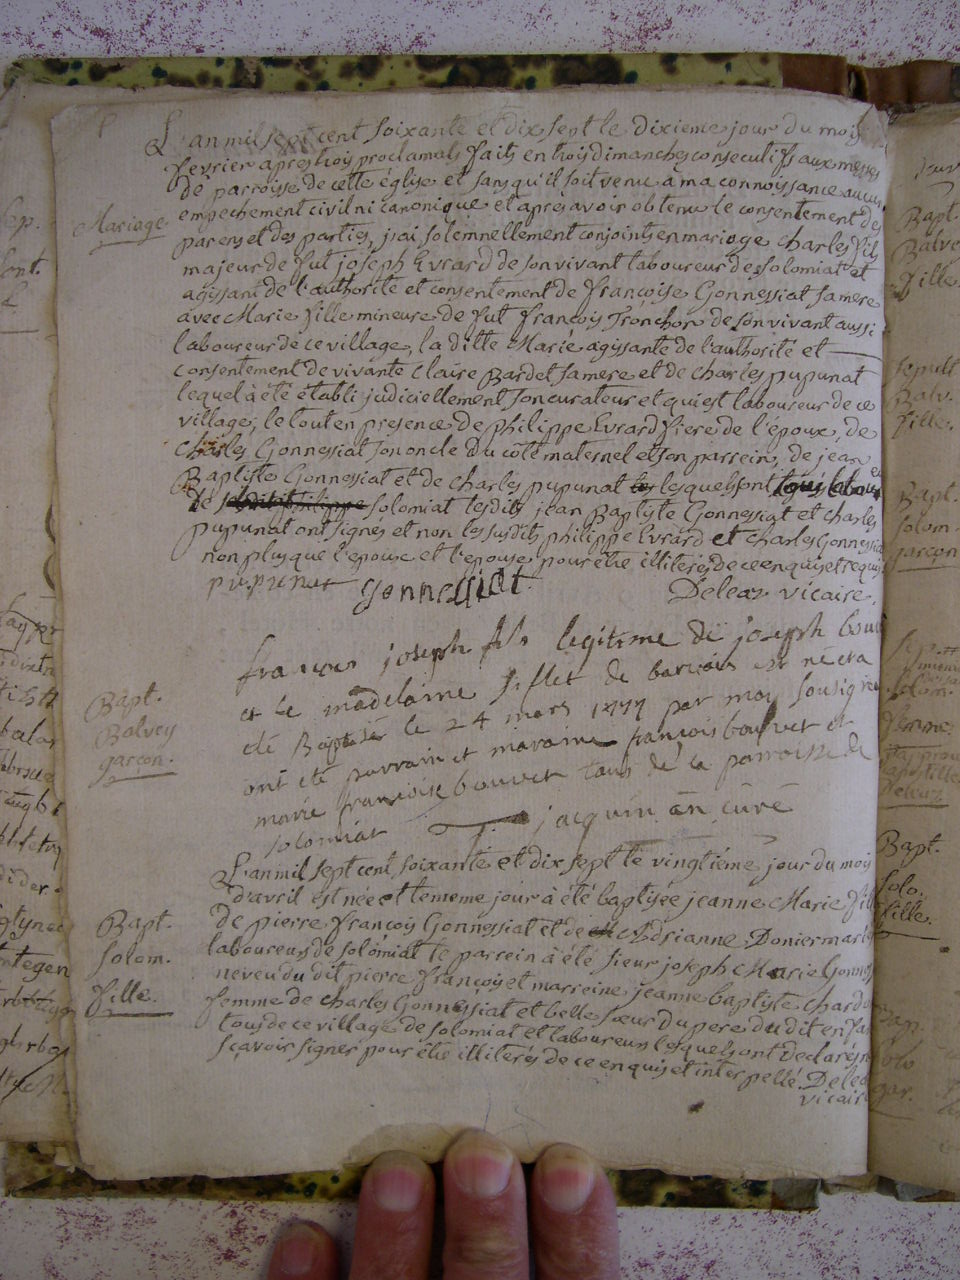 L'an mil sept cent soixante et dix sept le dixieme jour du mois
fevrier apres trois proclamats faits en trois dimanches consecutifs aux messes
de parroisse de cette église et sans qu'il soit venu a ma connoissance aucun
Mariage
empechement civil ni canonique et après avoir obtenu le consentement des
parens et des parties, j'ai solemnellement conjoints en mariage charles fils
majeur de fut joseph Evrard de son vivant laboureur de solomiat et
agissant de l'authorité et consentement de françoise Gonnessiat sa mere
avec Marie fille mineure de fut françois Tronchon de son vivant aussi
laboureur de ce village, la ditte Marie agissante de l'authorité et
consentement de vivante claire Bardet sa mere et de charles pupunat
lequel à été établi judiciellement son curateur et qui est laboureur de ce
village; le tout en presence de philippe Evrard frere de l'époux, de
charles Gonnessiat son oncle du côté maternel et son parrein, de jean
Baptiste Gonnessiat et de charles pupunat lesquels sont tous labou
de solomiat lesdits jean Baptiste Gonnessiat et charles
pupunat ont signés et non les susdits philippe Evrard et charles Gonnessia
non plus que l'epoux et l'epouse pour être illiterés de ce enquis et requis
pupunat Gonnessiat Deleaz vicaire.
françois joseph fils legitime de joseph bouv
et de madelaine siflet de est né et a
Bapt.
Balvey
garçon.
été Baptisé le 24 mars 1777 par moy sousigné
ont été parrain et maraine françois bouvet et
marie françoise bouvet tous de la parroisse de
solomiat jacquin en curé
L'an mil sept cent soixante et dix sept le vingtiéme jour du mois
d'avril est née et le meme jour à été baptisée jeanne Marie fill
Bapt.
Solom.
fille.
de pierre françois Gonnessiat et de Adrianne Donier mariés
laboureurs de solomiat le parrein à été sieur joseph Marie Gonnes
neveu du dit pierre françois et marreine jeanne baptiste chardo
femme de charles Gonnessiat et belle sœur du pere du dit enfan
tous de ce village de solomiat et laboureurs lesquels ont declaré ne
scavoir signer pour être illiterés de ce enquis et interpellé. Delea
vicaire